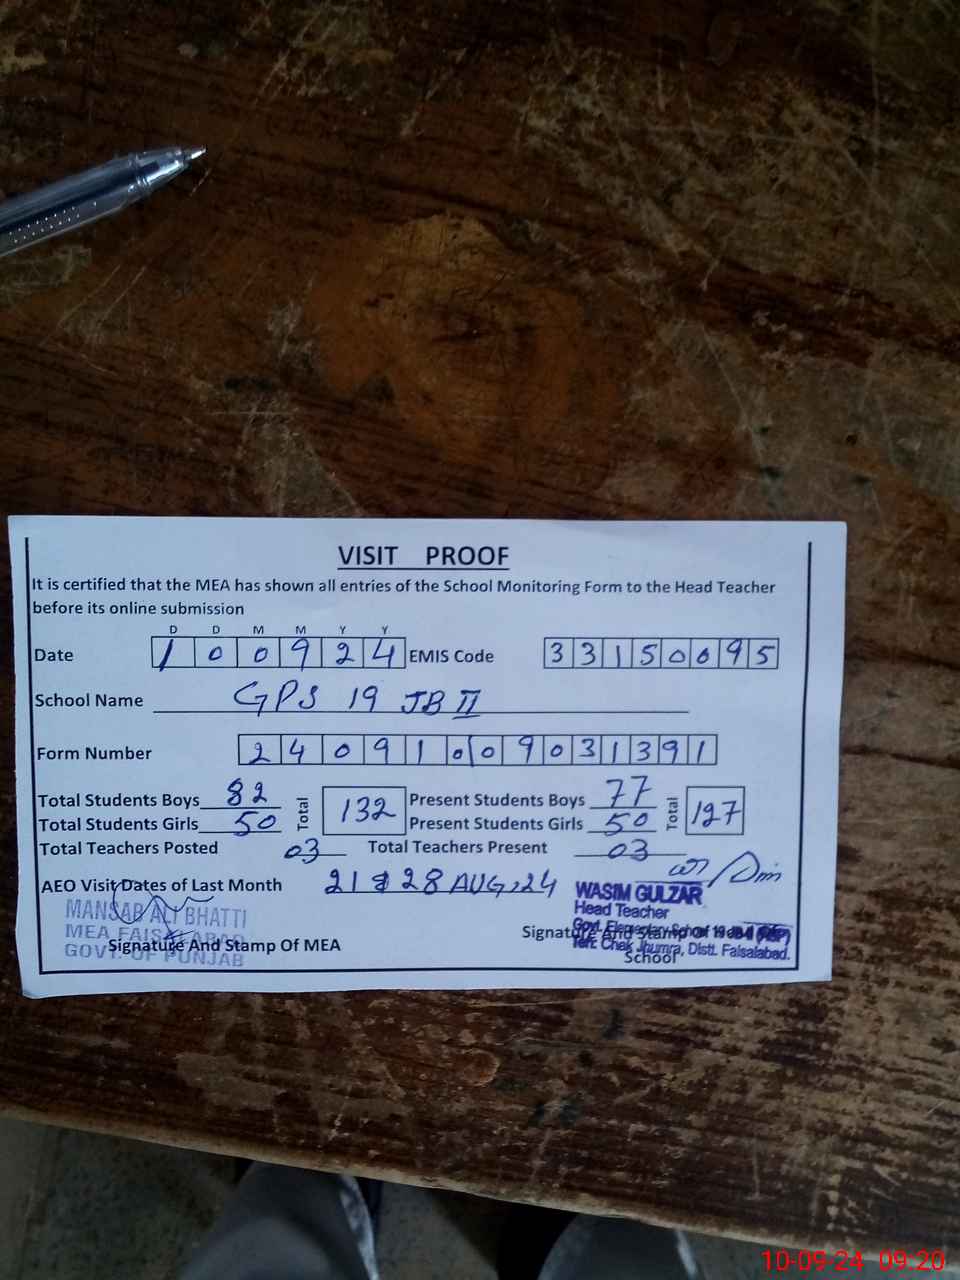 VISIT PROOF
It is certified that the MEA has shown all entries of the School Monitoring Form to the Head Teacher
before its online submission
D D M M Y Y
Date 1 0 0 9 2 4 EMIS Code 3 3 1 5 0 0 9 5
School Name GPS 19 JB II
Form Number 2 4 0 9 1 0 0 9 0 3 1 3 9 1
Total Students Boys 82 Total 132 Present Students Boys 77 Total 127
Total Students Girls 50 Present Students Girls 50
Total Teachers Posted 03 Total Teachers Present 03
AEO Visit Dates of Last Month 21 & 28 AUG, 24
MANSAB ALI BHATTI
MEA FAISALABAD
GOVT. OF PUNJAB
Signature And Stamp Of MEA
WASIM GULZAR
Head Teacher
Govt. Elementary School 19
Teh: Chak Jhumra, Distt. Faisalabad.
Signature And Stamp Of Head
School
10-09-24 09:20